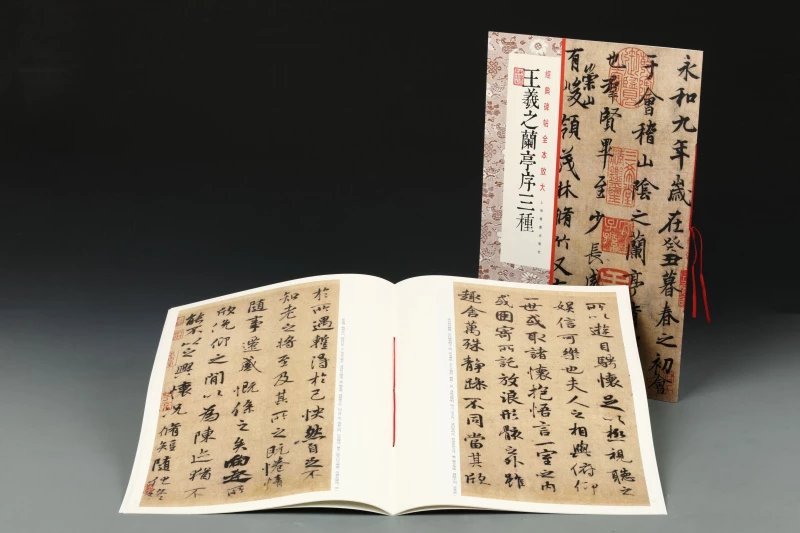 經典碑帖全本放大
王羲之蘭亭序三種
永和九年歲在癸丑暮春之初會
于會稽山陰之蘭亭
也群賢畢至少長咸
崇山
有峻領茂林脩竹又
所以遊目騁懷足以極視聽之
娛信可樂也夫人之相與俯仰
一世或取諸懷抱悟言一室之內
或因寄所託放浪形骸之外雖
趣舍萬殊靜躁不同當其欣
於所遇蹔得於己快然自足不
知老之將至及其所之既惓情
隨事遷感慨係之矣向之所
欣俛仰之間以為陳迹猶不
能不以之興懷況脩短隨化終